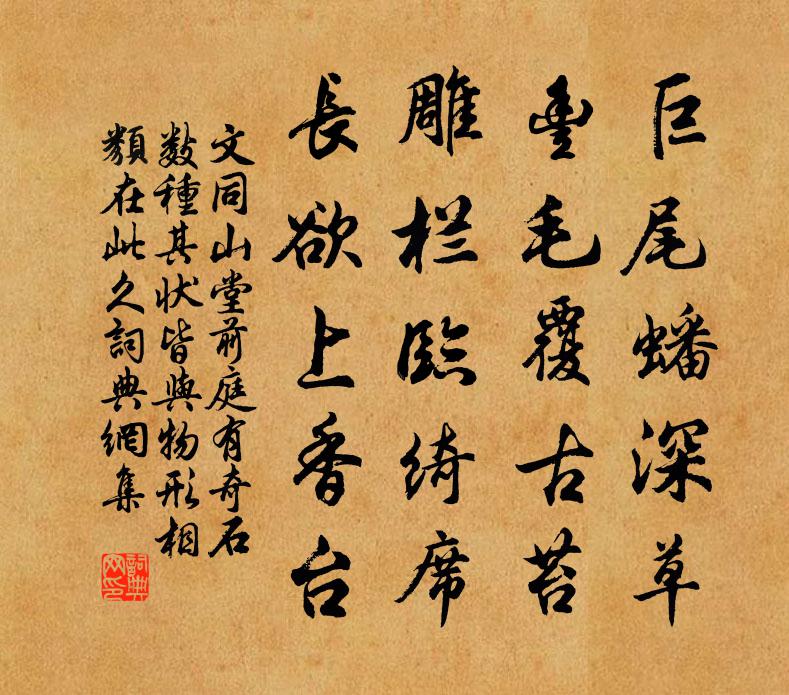 巨尾蟠深草
豊毛覆古苔
雕栏臨綺席
長欲上香台
文同山堂前庭有奇石
数種其状皆與物形相
類在此久詞典網集
詞典网印